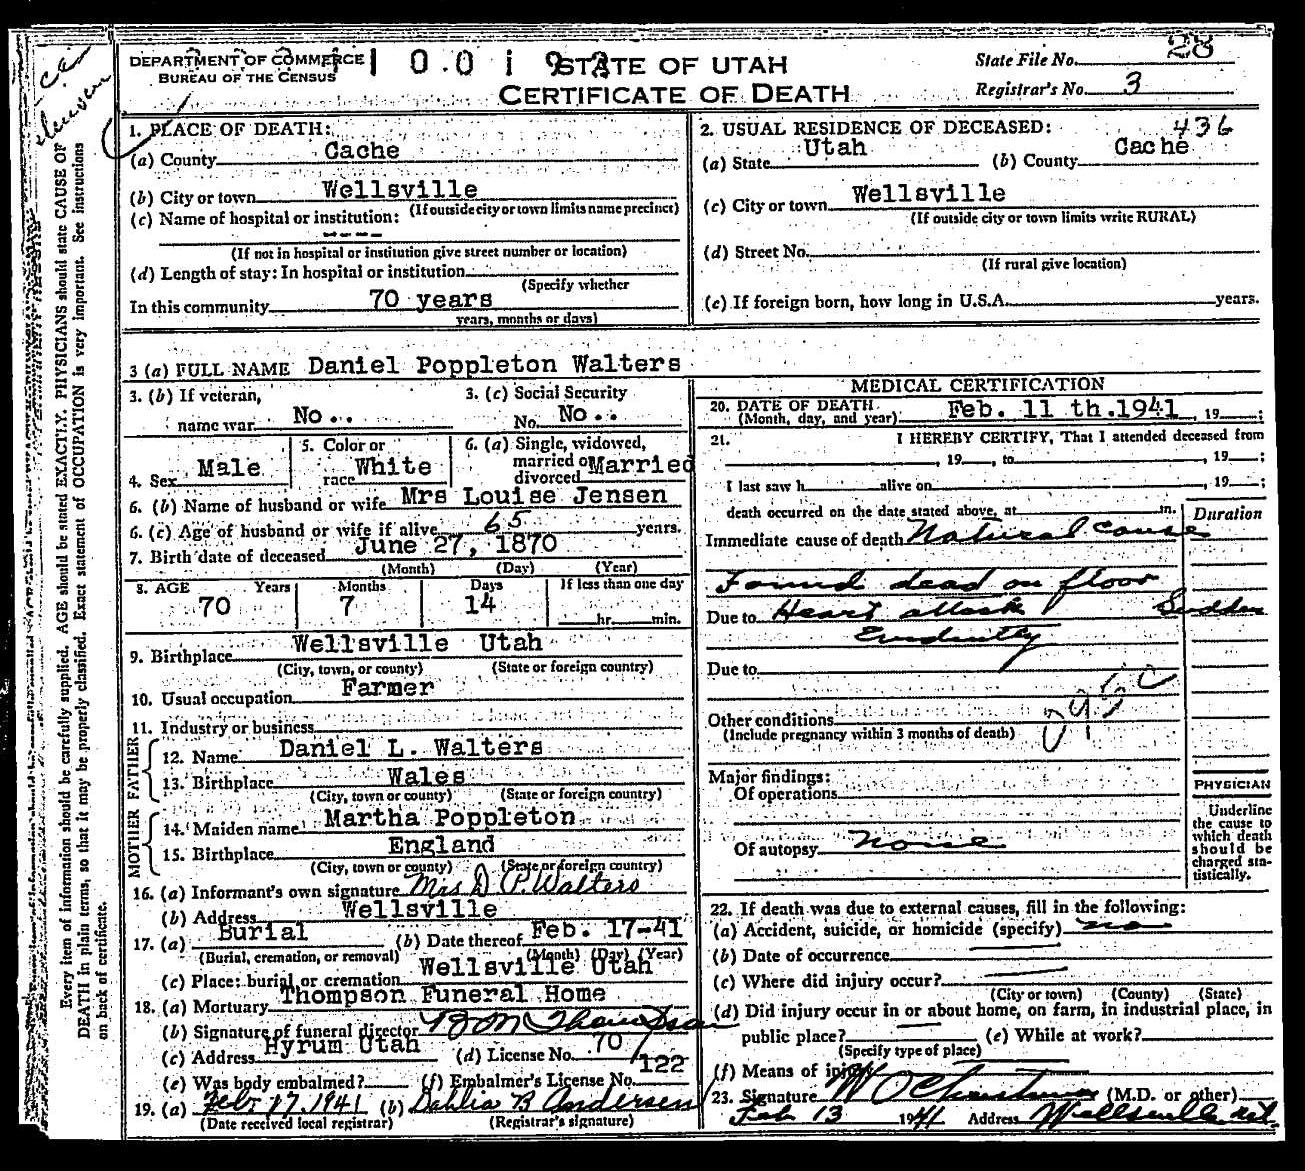 DEPARTMENT OF COMMERCE
BUREAU OF THE CENSUS
STATE OF UTAH
CERTIFICATE OF DEATH
State File No. 28
Registrar's No. 3
1. PLACE OF DEATH:
(a) County Cache
(b) City or town Wellsville
(If outside city or town limits name precinct)
(c) Name of hospital or institution:
----
(If not in hospital or institution give street number or location)
(d) Length of stay: In hospital or institution
(Specify whether
In this community 70 years
years, months or days)
2. USUAL RESIDENCE OF DECEASED: 436
(a) State Utah (b) County Cache
(c) City or town Wellsville
(If outside city or town limits write RURAL)
(d) Street No.
(If rural give location)
(e) If foreign born, how long in U.S.A. years.
3 (a) FULL NAME Daniel Poppleton Walters
3. (b) If veteran,
name war No..
3. (c) Social Security
No. No..
4. Sex Male
5. Color or
race White
6. (a) Single, widowed,
married or Married
divorced
6. (b) Name of husband or wife Mrs Louise Jensen
6. (c) Age of husband or wife if alive 65 years.
7. Birth date of deceased June 27, 1870
(Month) (Day) (Year)
8. AGE Years Months Days If less than one day
70 7 14 hr. min.
9. Birthplace Wellsville Utah
(City, town, or county) (State or foreign country)
10. Usual occupation Farmer
11. Industry or business
FATHER
12. Name Daniel L. Walters
13. Birthplace Wales
(City, town or county) (State or foreign country)
MOTHER
14. Maiden name Martha Poppleton
15. Birthplace England
(City, town or county) (State or foreign country)
16. (a) Informant's own signature Mrs D P. Walters
(b) Address Wellsville
17. (a) Burial (b) Date thereof Feb. 17-41
(Burial, cremation, or removal) (Month) (Day) (Year)
(c) Place: burial or cremation Wellsville Utah
18. (a) Mortuary Thompson Funeral Home
(b) Signature of funeral director B M Thompson
(c) Address Hyrum Utah (d) License No. 70
(e) Was body embalmed? (f) Embalmer's License No. 122
19. (a) Feb. 17. 1941 (b) Dahlia B Andersen
(Date received local registrar) (Registrar's signature)
MEDICAL CERTIFICATION
20. DATE OF DEATH
(Month, day, and year) Feb. 11 th. 1941, 19 ;
21. I HEREBY CERTIFY, That I attended deceased from
, 19 , to , 19 ;
I last saw h alive on , 19 ;
death occurred on the date stated above, at m.
Duration
Immediate cause of death Natural cause
Found dead on floor
Due to Heart attack Sudden
Evidently
Due to
Other conditions
(Include pregnancy within 3 months of death)
095c
Major findings:
Of operations
Of autopsy none
PHYSICIAN
Underline
the cause to
which death
should be
charged sta-
tistically.
22. If death was due to external causes, fill in the following:
(a) Accident, suicide, or homicide (specify) no
(b) Date of occurrence
(c) Where did injury occur?
(City or town) (County) (State)
(d) Did injury occur in or about home, on farm, in industrial place, in
public place? (e) While at work?
(Specify type of place)
(f) Means of injury
23. Signature W O Christensen (M.D. or other)
Feb 13 1941 Address Wellsville Ut.
Every item of information should be carefully supplied. AGE should be stated EXACTLY. PHYSICIANS should state CAUSE OF
DEATH in plain terms, so that it may be properly classified. Exact statement of OCCUPATION is very important. See instructions
on back of certificate.